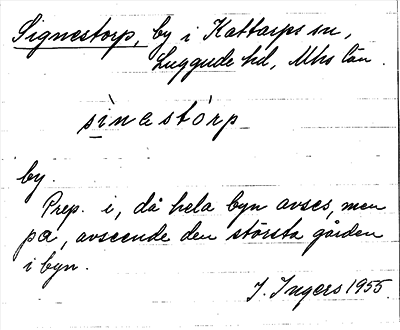 Signestorp, by i Kattarps sn,
Luggude hd, Mhs län.
sìnestórp
by.
Prep. i, då hela byn avses, men
på, avseende den största gården
i byn.
I. Ingers 1955.